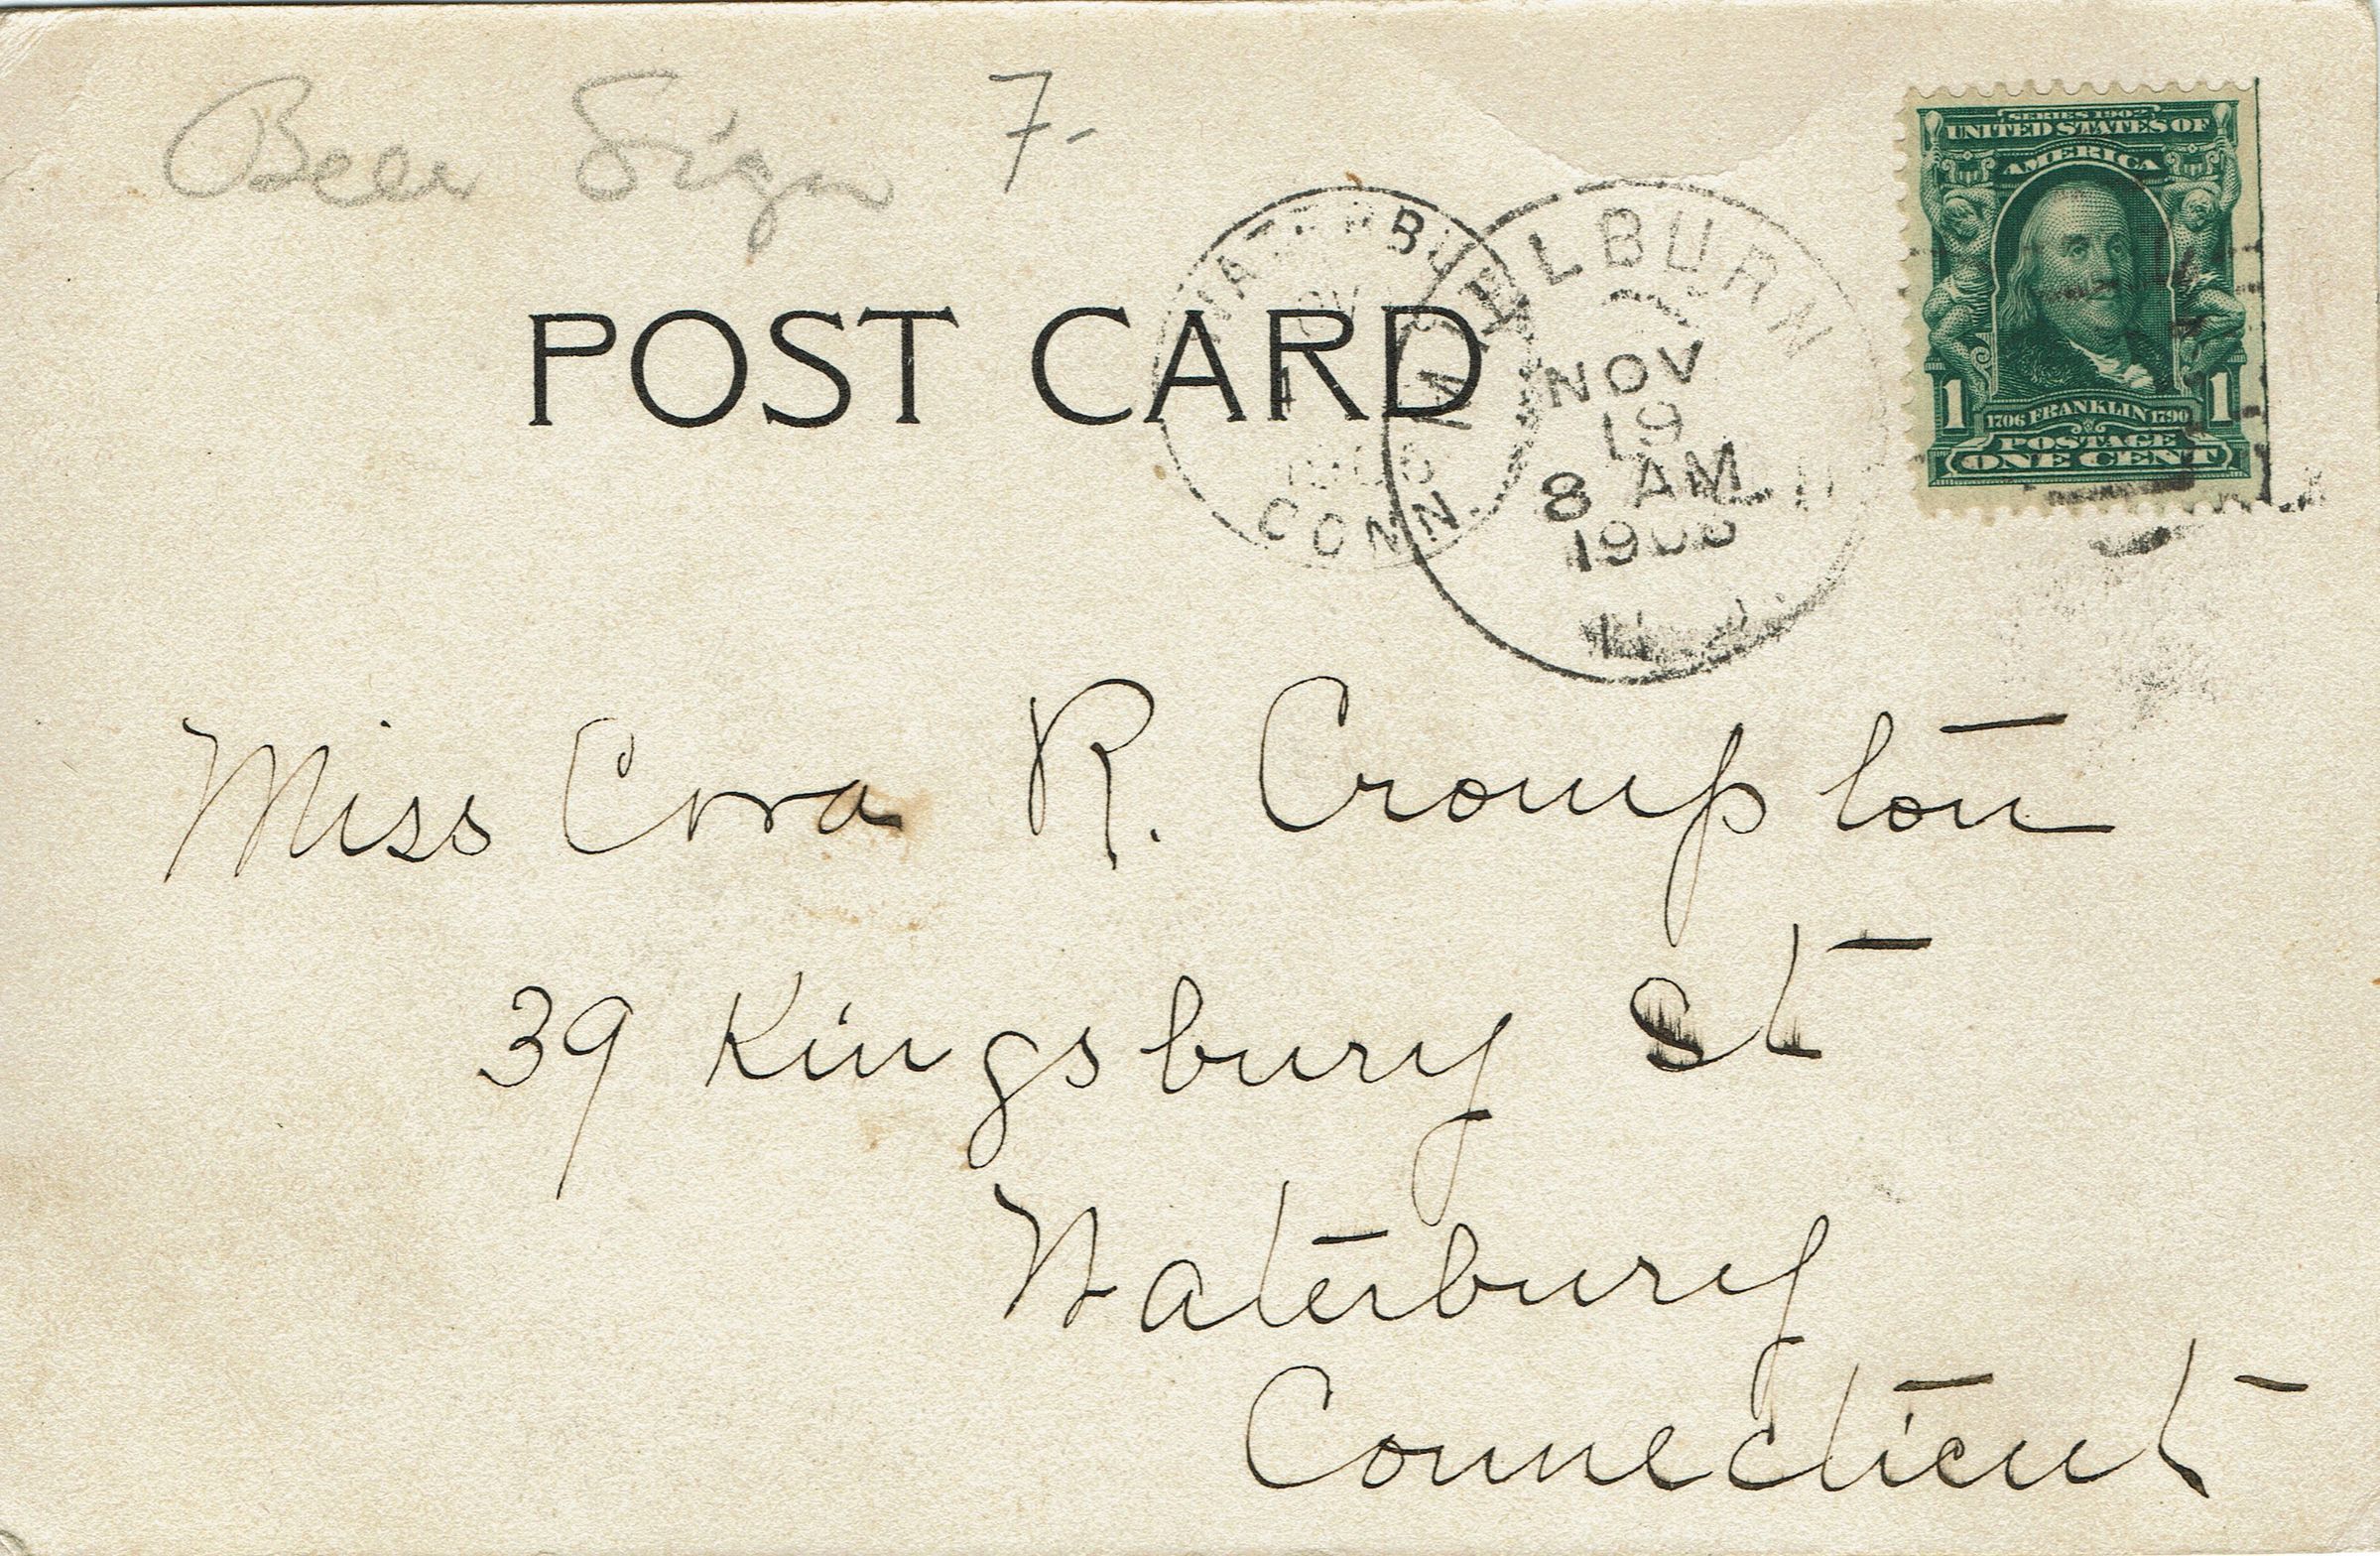 Beer Sign 7-
SERIES 1902
UNITED STATES OF
AMERICA
1706 FRANKLIN 1790
1 1
POSTAGE
ONE CENT
WATERBURY
CONN.
MILBURN
NOV
19
8 AM
POST CARD
Miss Cora R. Crompton
39 Kingsbury St
Waterbury
Connecticut